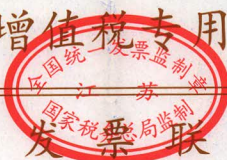 增值税专用
全国统一发票监制章
江苏
国家税务总局监制
发票联